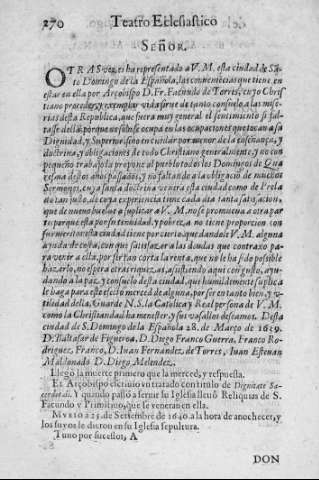 270 Teatro Eclesiastico
SEÑOR.
OTRAS vezes ha representado a V.M. esta ciudad de Sãto
Domingo de la Española, las conueniencias que tiene en
estar en ella por Arçobispo D. Fr. Facundo de Torres, cuyo Christiano
proceder, y exemplar vida sirue de tanto consuelo a las miserias
desta Republica, que fuera muy general el sentimiento si faltasse
della: porque no solo se ocupa en las ocupaciones que tocan a su
Dignidad, y Superior, sino en cuidar por menor de la enseñança, y
doctrina, y obligaciones de todo Christiano generalmente, y no con
pequeño trabajo la propone al pueblo todos los Domingos de Quaresma
destos años passados, y no faltando a la obligaciõ de muchos
Sermones, cuya santa doctrina venera esta ciudad como de Prelado
tan justo, de cuya experiencia tiene cada dia tanta satisfacion,
que de nueuo buelue a suplicar a V.M. no se promueua a otra parte:
y porque esta por su cortedad, y pobreza, no tiene proporcion con
sus meritos: esta ciudad tiene por cierto, que dandole V.M. alguna
ayuda de costa, con que satisfazer a las deudas que contraxo para
venir a ella, por ser tan corta la renta, que no le ha sido possible
hazerlo, no espera otras riquezas, assistiendo aqui con gusto, ayudando
a la paz, y consuelo desta ciudad, que humildemente suplica
le haga para este efecto merced de alguna, por ser en tanto bien, y vtilidad
della. Guarde N.S. la Catolica, y Real persona de V.M.
como la Christiandad ha menester, y sus vasallos desseamos. Desta
ciudad de S. Domingo de la Española 28. de Março de 1639.
D. Baltasar de Figueroa, D. Diego Franco Guerra, Franco Rodriguez,
Franco, D. Iuan Fernandez de Torres, Iuan Esteuan
Maldonado. D. Diego Melendez.
Llegò la muerte primero que la merced, y respuesta.
El Arçobispo escriuiò vn tratado con titulo de Dignitate Sacerdotali.
Y quando passò a seruir su Iglesia lleuò Reliquias de S.
Facundo y Primitiuo, que se veneran en ella.
MVRIO a 25. de Setiembre de 1640. a la hora de anochecer, y
los suyos le dieron en su Iglesia sepultura.
Tuuo por sucessor, A
DON